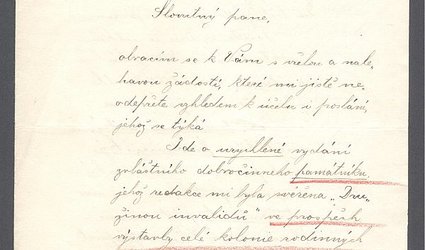 Slovutný pane,
obracím se k Vám s vřelou a nale-
havou žádostí, které mi jistě ne-
odepřete vzhledem k účelu i poslání,
jehož se týká
Jde o urychlené vydání
zvláštního dobročinného památníku,
jehož redakce mi byla svěřena „Dru-
žinou invalidů" ve prospěch
výstavby celé kolonie rodinných